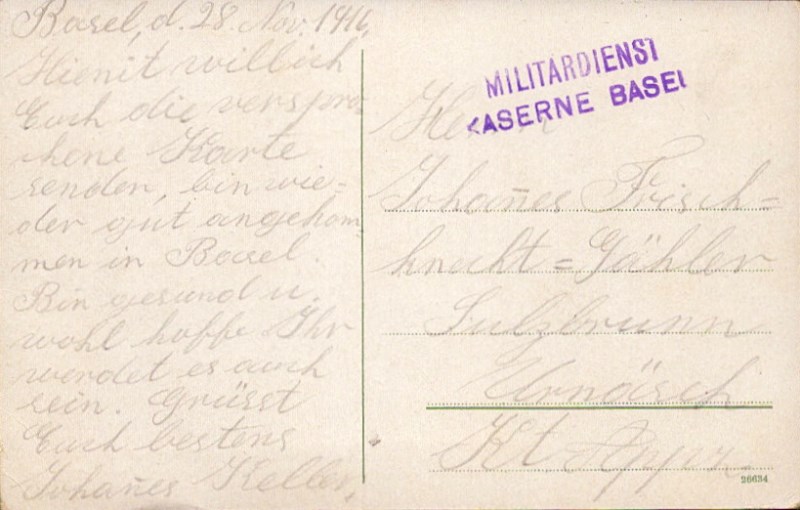 Basel, d. 28. Nov. 1916.
Hiemit will ich
Euch die verspro=
chene Karte
senden, bin wie=
der gut angekom=
men in Basel.
Bin gesund u.
wohl hoffe Ihr
werdet es auch
sein. Grüsst
Euch bestens
Johañes Keller.
MILITÄRDIENST
KASERNE BASEL
Herrn
Johañes Frisch=
knecht=Gähler
Sulzbrunn
Urnäsch
Kt Appz.
26634